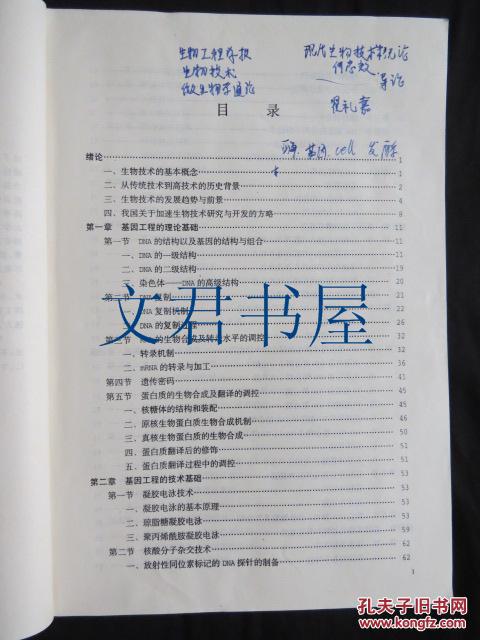 生物工程学报
生物技术
微生物学通论
现代生物技术概论
何忠效
导论
瞿礼嘉
目 录
蛋. 基因. cell 发酵
绪论 1
一、生物技术的基本概念 1
二、从传统技术到高技术的历史背景 2
三、生物技术的发展趋势与前景 4
四、我国关于加速生物技术研究与开发的方略 9
第一章 基因工程的理论基础 11
第一节 DNA的结构以及基因的结构与组合 11
一、DNA的一级结构 11
二、DNA的二级结构 19
三、染色体——DNA的高级结构 20
第二节 DNA复制 21
一、DNA复制机制 22
二、DNA的复制过程 26
第三节 的生物合成及转录水平的调控 32
一、转录机制 32
二、mRNA的转录与加工 36
第四节 遗传密码 41
第五节 蛋白质的生物合成及翻译的调控 45
一、核糖体的结构和装配 45
二、原核生物蛋白质生物合成机制 46
三、真核生物蛋白质的生物合成 50
四、蛋白质翻译后的修饰 51
五、蛋白质翻译过程中的调控 51
第二章 基因工程的技术基础 53
第一节 凝胶电泳技术 53
一、凝胶电泳的基本原理 53
二、琼脂糖凝胶电泳 53
三、聚丙烯酰胺凝胶电泳 59
第二节 核酸分子杂交技术 62
一、放射性同位素标记的DNA探针的制备 62
1
文君书屋
孔夫子旧书网
www.kongfz.com